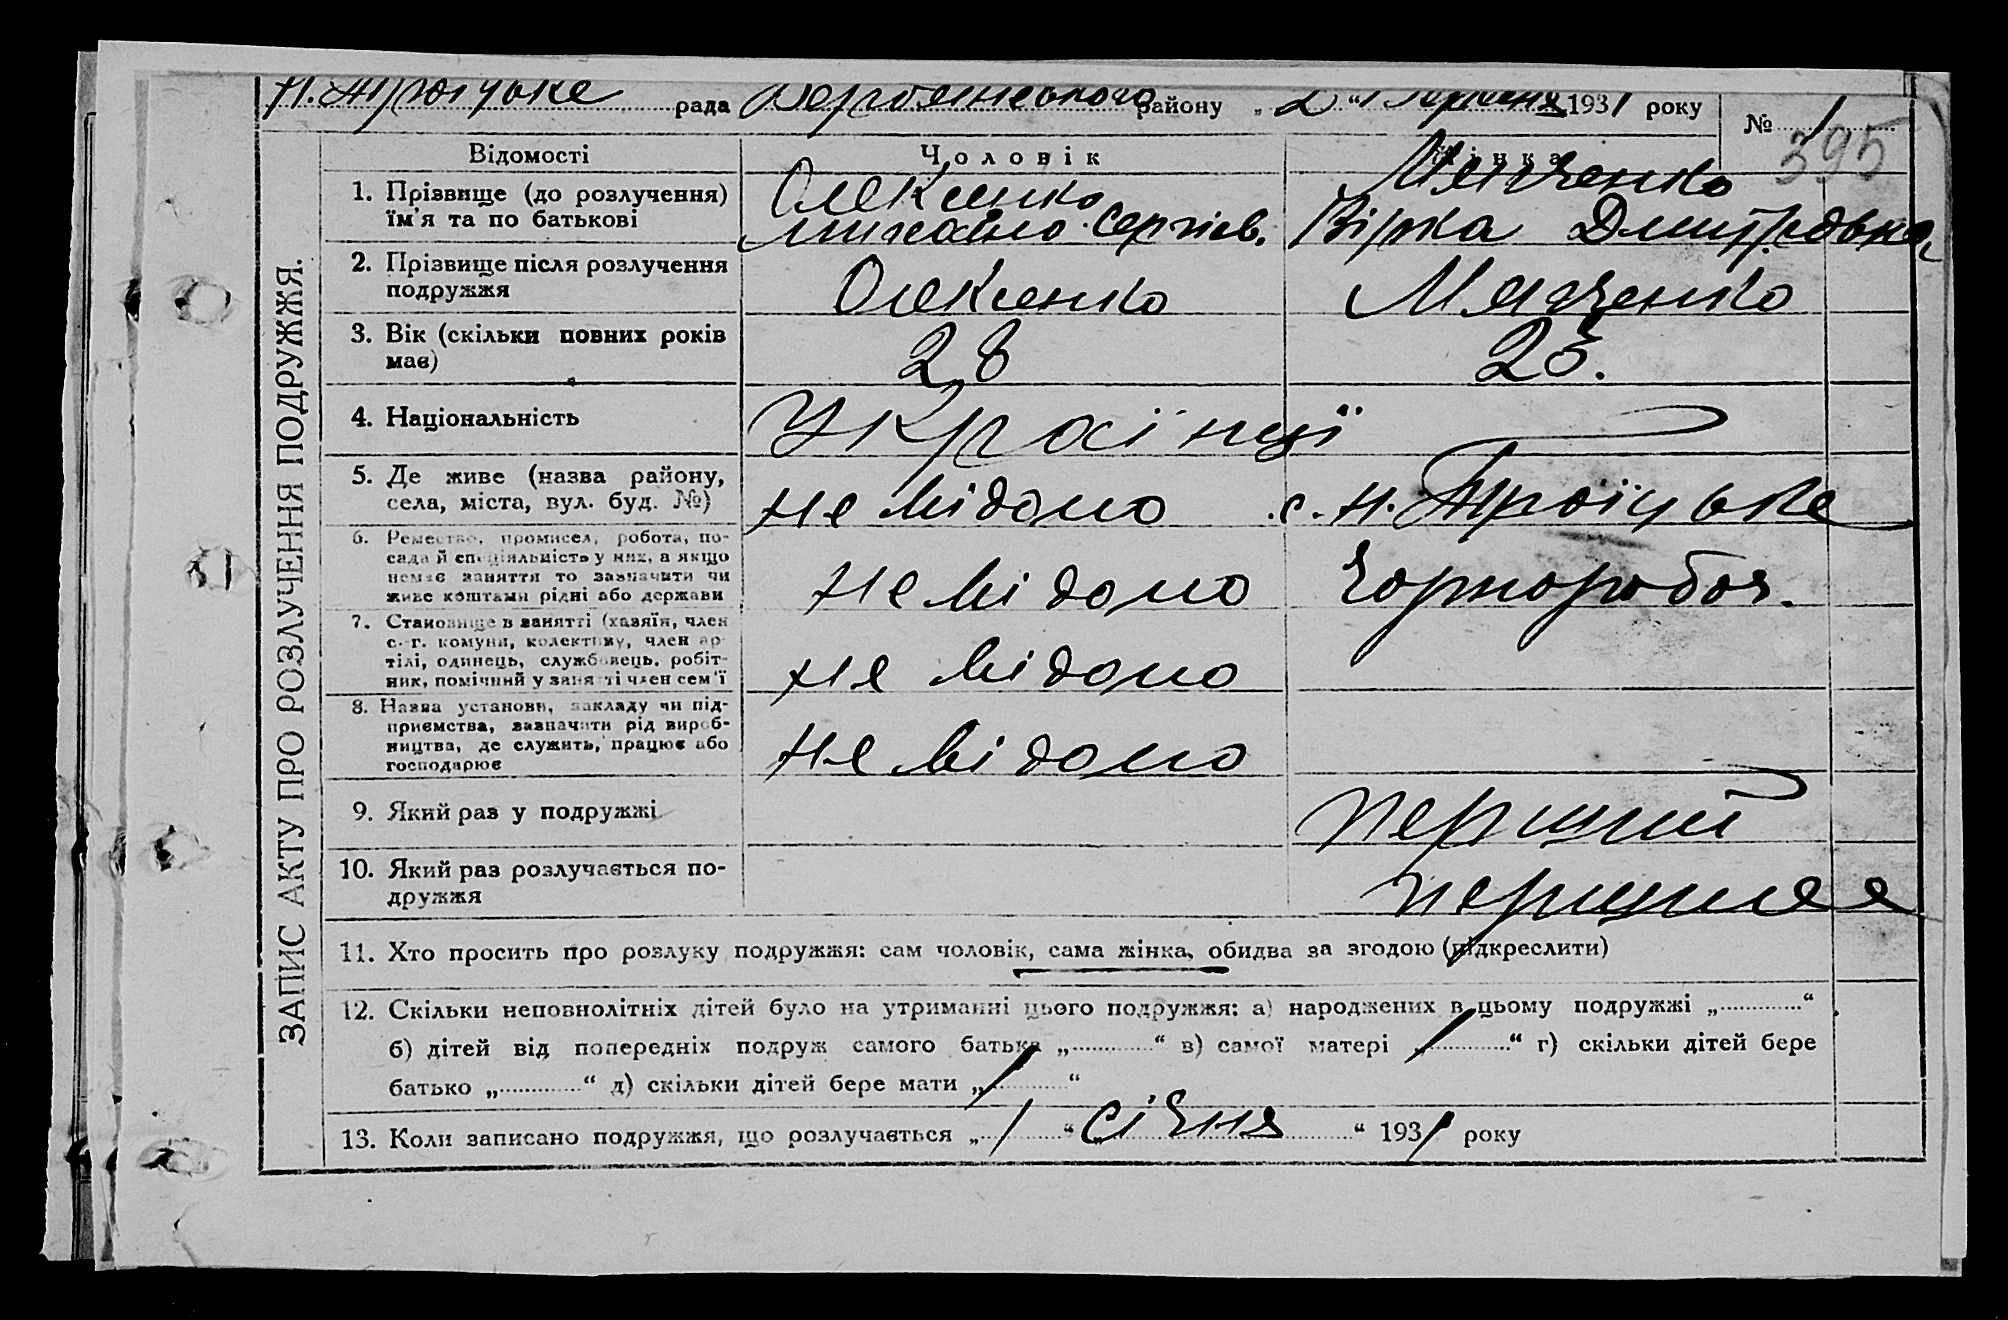 Н. Троїцьке рада Бердянського району „ 2 “ Червня 1931 року № 1
395
Відомості Чоловік Жінка
1. Прізвище (до розлучення) Олексенко Мятченко
їм'я та по батькові Михайло Сергієв. Вірка Дмитровна
2. Прізвище після розлучення Олексенко Мятченко
подружжя
3. Вік (скільки повних років 28 23.
має)
4. Національність Українці
5. Де живе (назва району, не відомо с. Н. Троїцьке
села, міста, вул. буд. №)
6. Ремество, промисел, робота, по-
сада й специяльність у них, а якщо не відомо Чорноробоч.
немає заняття то зазначити чи
живе коштами рідні або держави
7. Становище в занятті (хазяїн, член
с.-г. комуни, колективу, член ар-
тілі, одинець, службовець, робіт- не відомо
ник, помічний у занятті член сем'ї
8. Назва установи, закладу чи під-
приємства, зазначити рід вироб-
ництва, де служить, працює або не відомо
господарює
9. Який раз у подружжі перший
10. Який раз розлучається по-
дружжя
11. Хто просить про розлуку подружжя: сам чоловік, сама жінка, обидва за згодою (підкреслити)
12. Скільки неповнолітніх дітей було на утриманні цього подружжя: а) народжених в цьому подружжі „ “
б) дітей від попередніх подруж самого батька „ “ в) самої матері „ “ г) скільки дітей бере
батько „ “ д) скільки дітей бере мати „ “
13. Коли записано подружжя, що розлучається „ 1 “ „ січня “ 1931 року
ЗАПИС АКТУ ПРО РОЗЛУЧЕННЯ ПОДРУЖЖЯ.